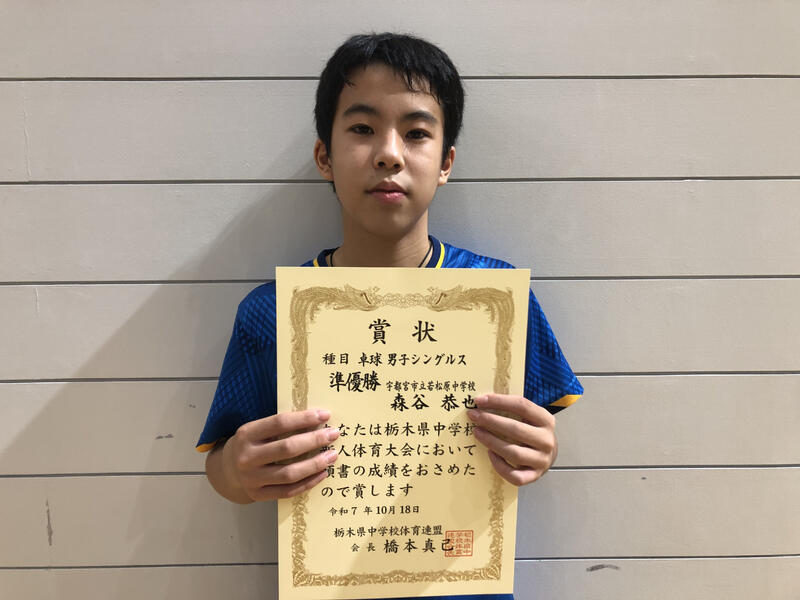 賞状
種目 卓球 男子シングルス
準優勝 宇都宮市立若松原中学校
森谷 恭也
なたは栃木県中学校
人体育大会において
書の成績をおさめた
ので賞します
令和7年10月18日
栃木県中学校体育連盟
会長 橋本真己